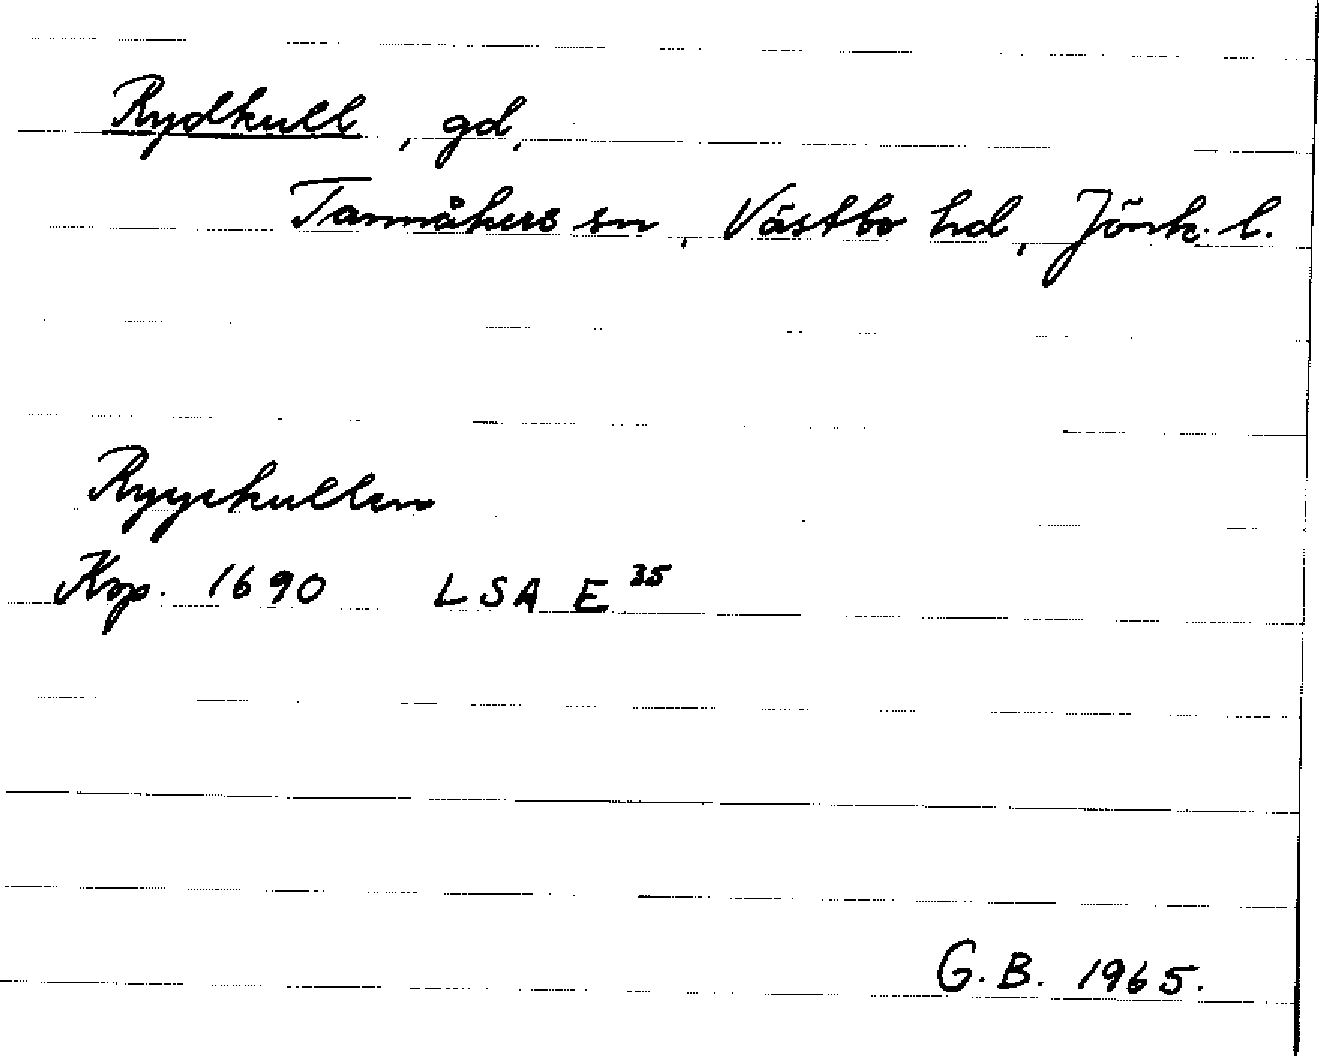 Rydkull, gd,
Tannåkers sn, Västbo hd, Jönk. l.
Ryyekullen
Kop. 1690 LSA E 35
G.B. 1965.